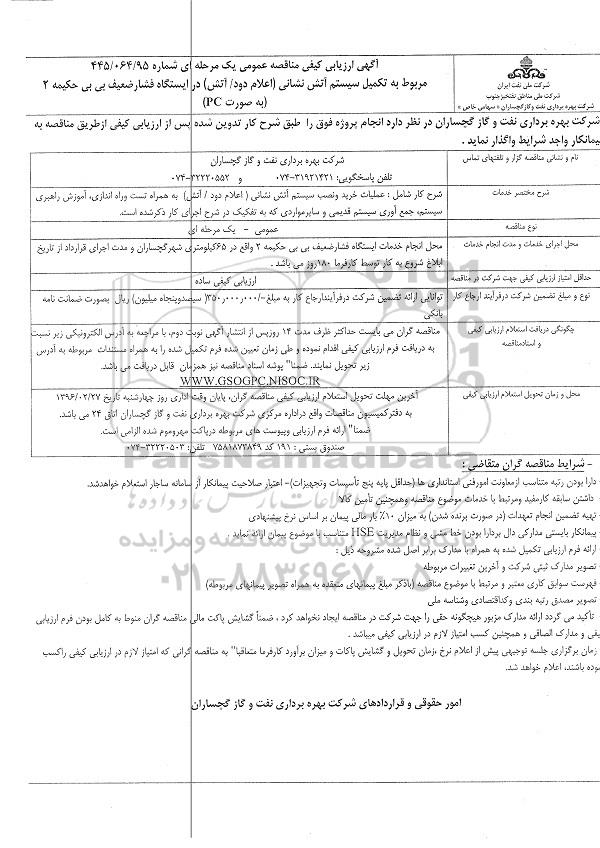 آگهی ارزیابی کیفی مناقصه عمومی یک مرحله ای شماره ۴۴۵/۰۶۴/۹۵
مربوط به تکمیل سیستم آتش نشانی (اعلام دود/ آتش) در ایستگاه فشارضعیف بی بی حکیمه ۲
(به صورت PC)
شرکت ملی نفت ایران
شرکت ملی مناطق نفتخیزجنوب
شرکت بهره برداری نفت وگازگچساران « سهامی خاص »
شرکت بهره برداری نفت و گاز گچساران در نظر دارد انجام پروژه فوق را طبق شرح کار تدوین شده پس از ارزیابی کیفی ازطریق مناقصه به
پیمانکار واجد شرایط واگذار نماید .
نام و نشانی مناقصه گزار و تلفنهای تماس
شرکت بهره برداری نفت و گاز گچساران
تلفن پاسخگویی: ۳۱۹۲۱۴۲۱-۰۷۴ و ۳۲۲۲۰۵۵۲-۰۷۴
شرح مختصر خدمات
شرح کار شامل : عملیات خرید ونصب سیستم آتش نشانی ( اعلام دود / آتش) به همراه تست وراه اندازی، آموزش راهبری
سیستم، جمع آوری سیستم قدیمی و سایرمواردی که به تفکیک در شرح اجرای کار ذکرشده است.
نوع مناقصه
عمومی - یک مرحله ای
محل اجرای خدمات و مدت انجام خدمات
محل انجام خدمات ایستگاه فشارضعیف بی بی حکیمه ۲ واقع در ۶۵کیلومتری شهرگچساران و مدت اجرای قرارداد از تاریخ
ابلاغ شروع به کار توسط کارفرما ۱۸۰روز می باشد .
حداقل امتیاز ارزیابی کیفی جهت شرکت در مناقصه
ارزیابی کیفی ساده
نوع و مبلغ تضمین شرکت درفرآیند ارجاع کار
توانایی ارائه تضمین شرکت درفرآیندارجاع کار به مبلغ-/۳۵۰٫۰۰۰٫۰۰۰( سیصدوپنجاه میلیون) ریال بصورت ضمانت نامه
بانکی
چگونگی دریافت استعلام ارزیابی کیفی
و اسنادمناقصه
مناقصه گران می بایست حداکثر ظرف مدت ۱۴ روزپس از انتشار آگهی نوبت دوم، با مراجعه به آدرس الکترونیکی زیر نسبت
به دریافت فرم ارزیابی کیفی اقدام نموده و طی زمان تعیین شده فرم تکمیل شده را به همراه مستندات مربوطه به آدرس
زیر تحویل نمایند. ضمنا" پوشه اسناد مناقصه نیز همزمان قابل دریافت می باشد.
WWW.GSOGPC.NISOC.IR
محل و زمان تحویل استعلام ارزیابی کیفی
آخرین مهلت تحویل استعلام ارزیابی کیفی مناقصه گران، پایان وقت اداری روز چهارشنبه تاریخ ۱۳۹۶/۰۲/۲۷
به دفترکمیسیون مناقصات واقع دراداره مرکزی شرکت بهره برداری نفت و گاز گچساران اتاق ۲۴ می باشد.
ضمنا" ارائه فرم ارزیابی وپیوست های مربوطه درپاکت مهروموم شده الزامی است.
صندوق پستی : ۱۹۱ کد ۷۵۸۱۸۷۳۸۴۹ تلفن: ۳۲۲۲۰۵۰۳-۰۷۴
ParsNamadData
- شرایط مناقصه گران متقاضی :
دارا بودن رتبه متناسب ازمعاونت امورفنی استانداری ها (حداقل پایه پنج تأسیسات وتجهیزات)- اعتبار صلاحیت پیمانکار از سامانه ساجار استعلام خواهدشد.
داشتن سابقه کارمفید ومرتبط با خدمات موضوع مناقصه وهمچنین تأمین کالا
تهیه تضمین انجام تعهدات (در صورت برنده شدن) به میزان ۱۰٪ بار مالی پیمان بر اساس نرخ پیشنهادی
پیمانکار بایستی مدارکی دال بردارا بودن خط مشی و نظام مدیریت HSE متناسب با موضوع پیمان ارائه نماید .
ارائه فرم ارزیابی تکمیل شده به همراه با مدارک برابر اصل شده مشروحه ذیل :
تصویر مدارک ثبتی شرکت و آخرین تغییرات مربوطه
فهرست سوابق کاری معتبر و مرتبط با موضوع مناقصه (باذکر مبلغ پیمانهای منعقده به همراه تصویر پیمانهای مربوطه)
تصویر مصدق رتبه بندی وکداقتصادی وشناسه ملی
تأکید می گردد ارائه مدارک مزبور هیچگونه حقی را جهت شرکت در مناقصه ایجاد نخواهد کرد ، ضمناً گشایش پاکت مالی مناقصه گران منوط به کامل بودن فرم ارزیابی
یفی و مدارک الصاقی و همچنین کسب امتیاز لازم در ارزیابی کیفی میباشد .
زمان برگزاری جلسه توجیهی پیش از اعلام نرخ ،زمان تحویل و گشایش پاکات و میزان برآورد کارفرما متعاقبا" به مناقصه گرانی که امتیاز لازم در ارزیابی کیفی راکسب
موده باشند، اعلام خواهد شد.
امور حقوقی و قراردادهای شرکت بهره برداری نفت و گاز گچساران